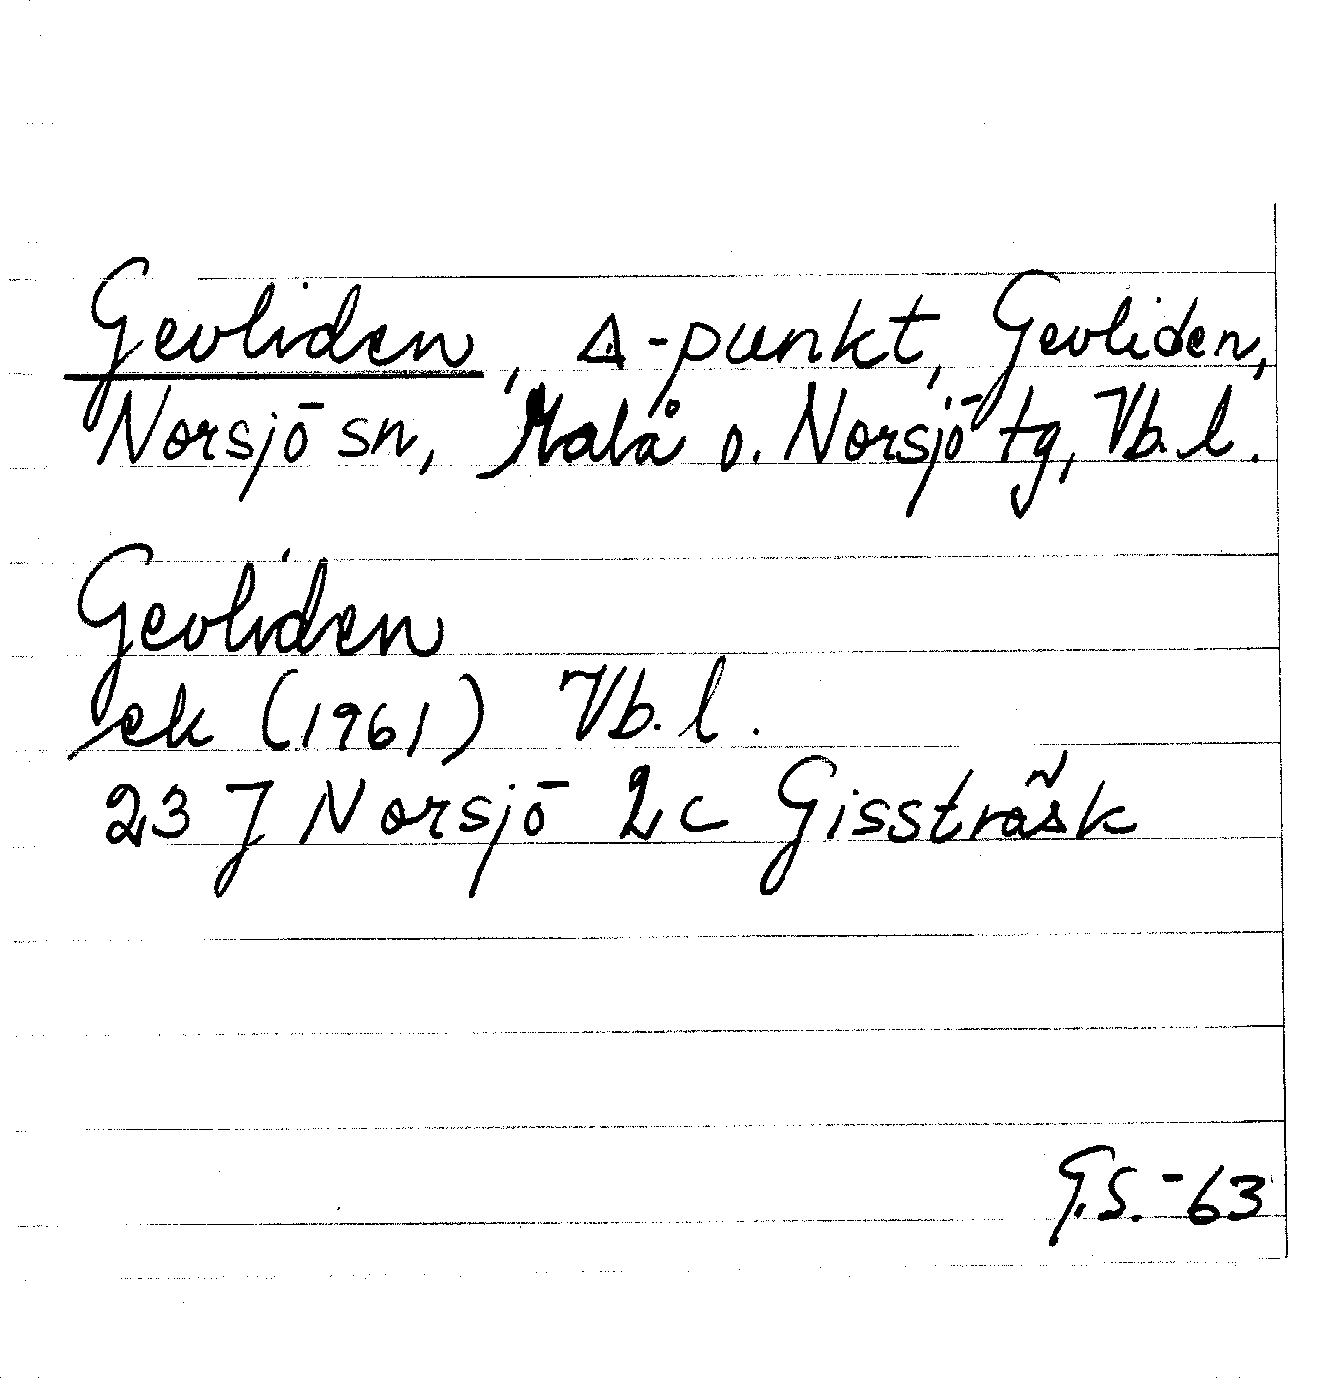 Gevliden, Δ-punkt, Gevliden,
Norsjö sn, Malå o. Norsjö tg, Vb. l.
Gevliden
ek (1961) Vb. l.
23 J Norsjö 2c Gissträsk
G.S.-63